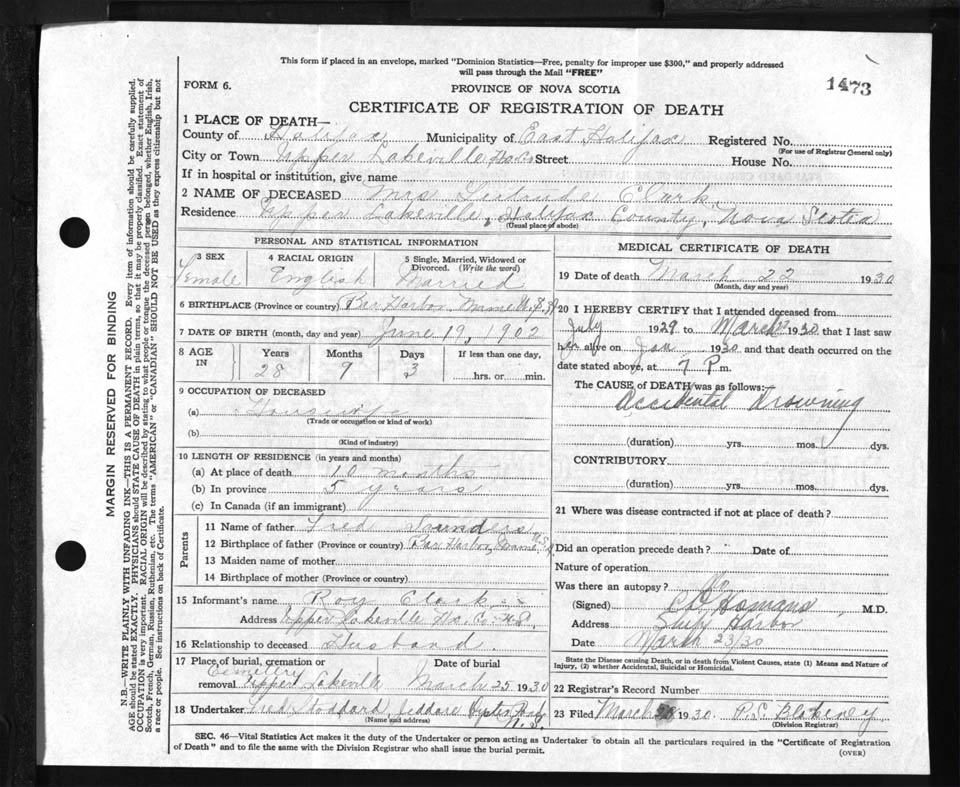 This form if placed in an envelope, marked "Dominion Statistics—Free, penalty for improper use $300," and properly addressed
will pass through the Mail "FREE"
FORM 6.
PROVINCE OF NOVA SCOTIA
1473
CERTIFICATE OF REGISTRATION OF DEATH
1 PLACE OF DEATH—
County of Halifax Municipality of East Halifax Registered No.
(For use of Registrar General only)
City or Town Upper Lakeville Ha. Co Street House No.
If in hospital or institution, give name
2 NAME OF DECEASED Mrs Gertrude Clark
Residence Upper Lakeville, Halifax County, Nova Scotia
(Usual place of abode)
PERSONAL AND STATISTICAL INFORMATION
3 SEX 4 RACIAL ORIGIN 5 Single, Married, Widowed or
Divorced. (Write the word)
Female English Married
6 BIRTHPLACE (Province or country) Bar Harbor Maine U.S.A
7 DATE OF BIRTH (month, day and year) June 19, 1902
8 AGE IN Years Months Days If less than one day,
28 9 3 hrs. or min.
9 OCCUPATION OF DECEASED
(a) Housewife
(Trade or occupation or kind of work)
(b)
(Kind of industry)
10 LENGTH OF RESIDENCE (in years and months)
(a) At place of death 10 months
(b) In province 5 years
(c) In Canada (if an immigrant)
Parents
11 Name of father Fred Saunders
12 Birthplace of father (Province or country) Bar Harbor, Maine, U.S.A
13 Maiden name of mother
14 Birthplace of mother (Province or country)
15 Informant's name Roy Clark
Address Upper Lakeville Ha. Co. N.S.
16 Relationship to deceased Husband.
17 Place of burial, cremation or Date of burial
Cemetery
removal Upper Lakeville March 25 1930
18 Undertaker Fred Stoddard, Jeddore Oyster Ponds
(Name and address) N.S.
MEDICAL CERTIFICATE OF DEATH
19 Date of death March 22 1930
(Month, day and year)
20 I HEREBY CERTIFY that I attended deceased from
July 1929 to March 1930 that I last saw
her alive on Jan 1930 and that death occurred on the
date stated above, at 7 P m.
The CAUSE OF DEATH was as follows:
Accidental Drowning
(duration) yrs. mos. dys.
CONTRIBUTORY
(duration) yrs. mos. dys.
21 Where was disease contracted if not at place of death?
Did an operation precede death? Date of
Nature of operation
Was there an autopsy? No
(Signed) Homans M.D.
Address Ship Harbor
Date March 23/30
State the Disease causing Death, or in death from Violent Causes, state (1) Means and Nature of
Injury, (2) whether Accidental, Suicidal or Homicidal.
22 Registrar's Record Number
23 Filed March 1930. P.S. Blakeney
(Division Registrar)
SEC. 46—Vital Statistics Act makes it the duty of the Undertaker or person acting as Undertaker to obtain all the particulars required in the "Certificate of Registration
of Death" and to file the same with the Division Registrar who shall issue the burial permit.
(OVER)
MARGIN RESERVED FOR BINDING
N.B.—WRITE PLAINLY WITH UNFADING INK—THIS IS A PERMANENT RECORD. Every item of information should be carefully supplied.
AGE should be stated EXACTLY. PHYSICIANS should STATE CAUSE OF DEATH in plain terms, so that it may be properly classified. Exact statement of
OCCUPATION is very important. RACIAL ORIGIN will be described by stating to what people or tongue the deceased person belonged, whether English, Irish,
Scotch, French, German, Russian, Ruthenian, etc. The terms "AMERICAN" or "CANADIAN" SHOULD NOT BE USED as they express citizenship but not
a race or people. See instructions on back of Certificate.